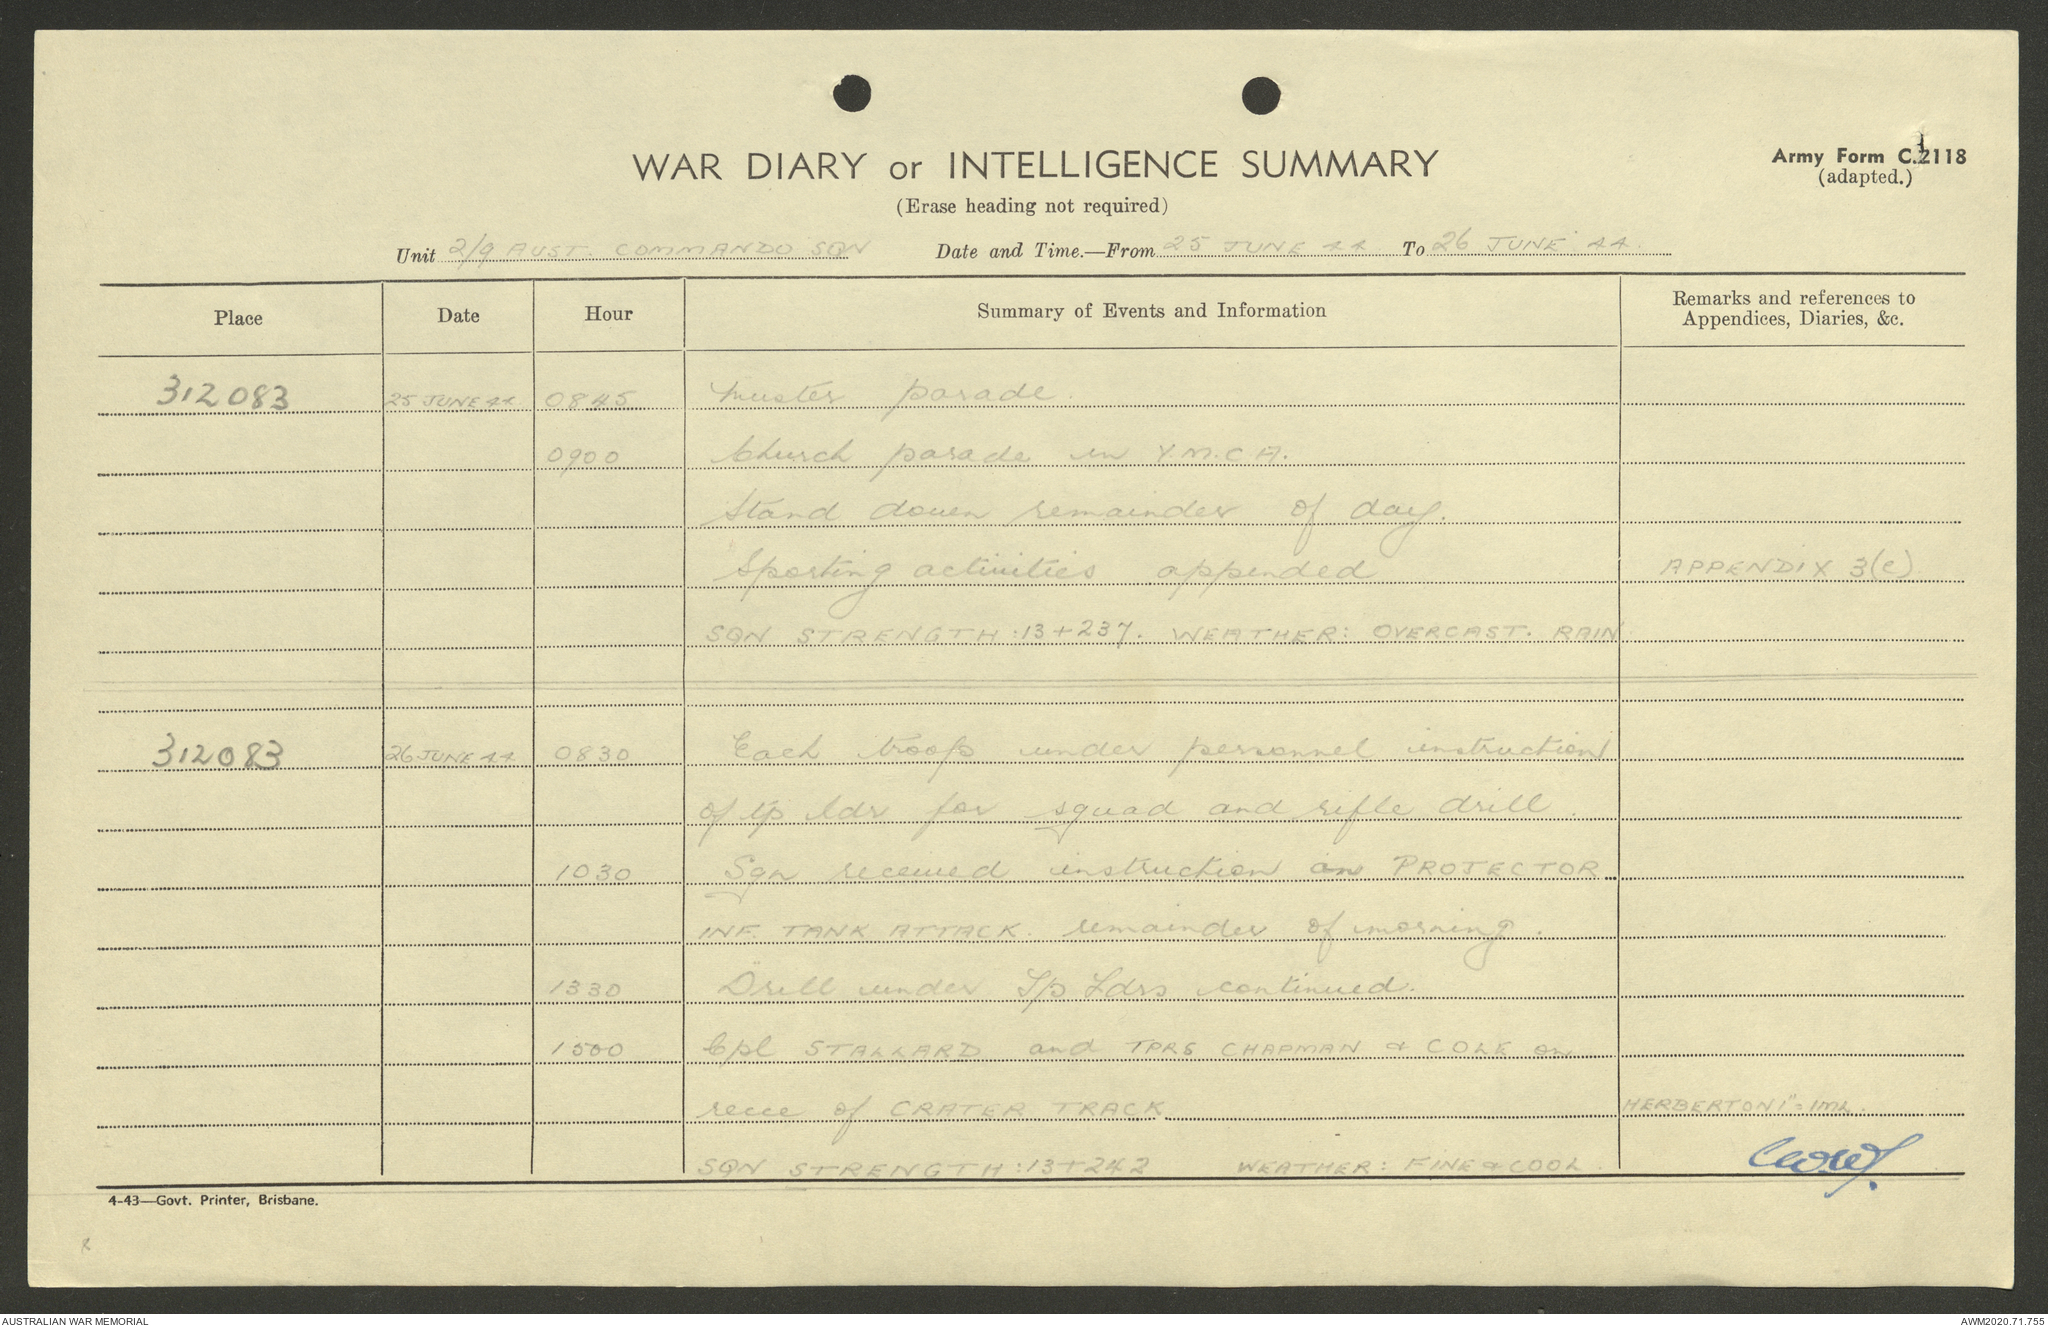 WAR DIARY or INTELLIGENCE SUMMARY
Army Form C.2118
(adapted.)
(Erase heading not required)
Unit 2/9 AUST. COMMANDO SQN Date and Time.—From 25 JUNE 44 To 26 JUNE 44.
Place Date Hour Summary of Events and Information Remarks and references to Appendices, Diaries, &c.
312083 25 JUNE 44 0845 Muster parade.
0900 Church parade in Y.M.C.A.
Stand down remainder of day.
Sporting activities appended APPENDIX 3(c)
SQN STRENGTH: 13+237. WEATHER: OVERCAST. RAIN
312083 26 JUNE 44 0830 Each troop under personnel instruction
of tp ldr for squad and rifle drill.
1030 Sqn received instruction on PROJECTOR
INF. TANK ATTACK. remainder of morning.
1330 Drill under Tp Ldrs continued.
1500 Cpl STALLARD and TPRS CHAPMAN & COLE on
recce of CRATER TRACK HERBERTON 1"=1ML.
SQN STRENGTH: 13+242 WEATHER: FINE & COOL.
4-43—Govt. Printer, Brisbane.
AUSTRALIAN WAR MEMORIAL AWM2020.71.755